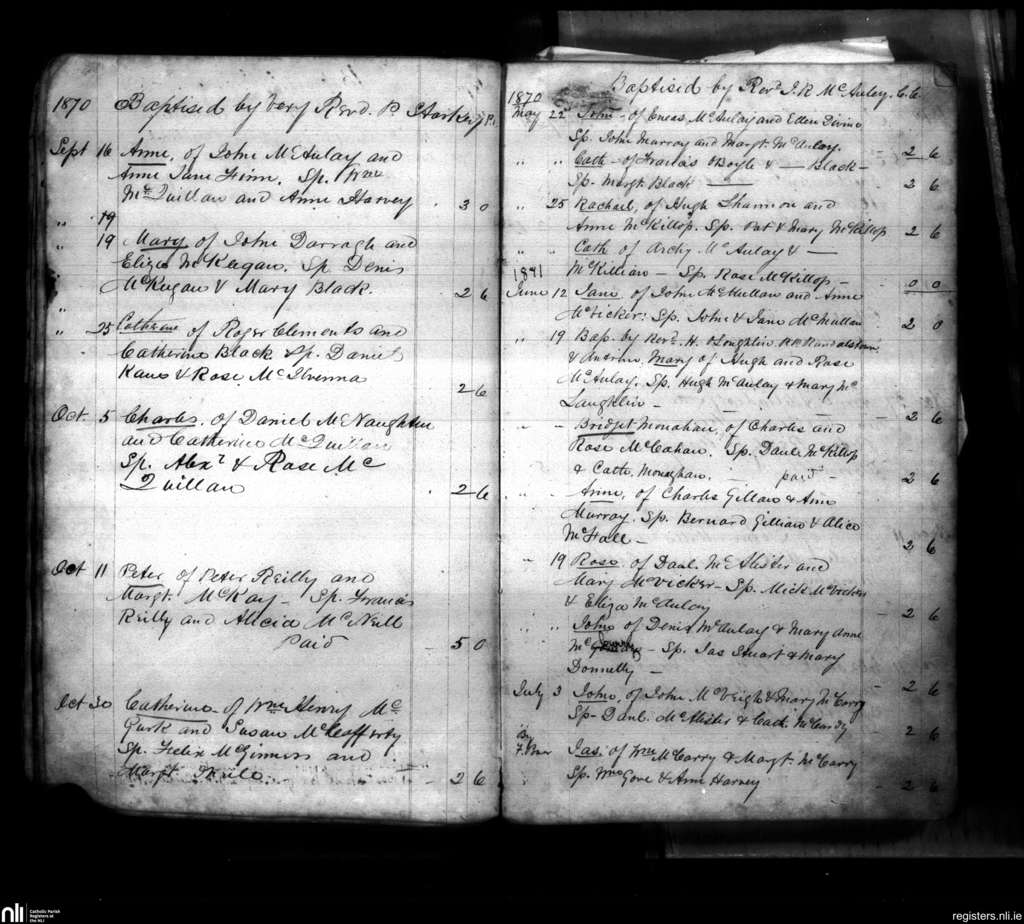 1870 Baptised by Very Revd. P. Starkey P.P.
Sept 16 Anne, of John McAulay and
Anne Jane Finn. Sp. Wm
McQuillan and Anne Harvey 3 0
" 19
" 19 Mary of John Darragh and
Eliza McKeegan. Sp Denis
McKeegan & Mary Black. 2 6
" 25 Catherine of Roger Clements and
Catherine Black & Sp. Daniel
Kane & Rose McIlvenna
2 6
Oct. 5 Charles, of Daniel McNaughten
and Catherine McQuillan
Sp. Alexr & Rose Mc
Quillan 2 6
Oct 11 Peter, of Peter Reilly and
Margt. McKay - Sp. Francis
Reilly and Alicia McNeill
Paid - 5 0
Oct 30 Catherine of Wm Henry Mc
Gurk and Susan McCafferty
Sp. Felix McGinness and
Margt. 2 6
1870 Baptised by Revd. J. R. McAuley C.C.
May 22 John - of Eneas McAulay and Ellen Divine
Sp. John Murray and Margt. McAulay. 2 6
" " Cath - of Francis O'Boyle & — Black -
Sp. Margt. Black — 2 6
" 25 Rachael, of Hugh Shannon and
Anne McKillop. Sp. Pat & Mary McKillop 2 6
" " Cath of Archy McAulay & —
1871 McKillian - Sp. Rose McKillop - 0 0
June 12 Jane of John McMullan and Anne
McVicker: Sp. John & Jane McMullan 2 0
" 19 Bap. by Revd. H. O'Loughlin P.P. Randalstown
& Antrim, Mary of Hugh and Rose
McAulay. Sp. Hugh McAulay & Mary Mc
Laughlin - - - 2 6
- - Bridget Monahan, of Charles and
Rose McCahan. Sp. Danl. McKillop
& Cath. Monaghan. - paid - 2 6
" " Anne, of Charles Gillan & Ann
Murray. Sp. Bernard Gillian & Alice
McFall - 2 6
" 19 Rose of Danl. McAlister and
Mary McVicker - Sp. Mick McVicker
& Eliza McAulay 2 6
" " John of Denis McAulay & Mary Anne
Mc - Sp. Jas Stuart & Mary
Donnelly - 2 6
July 3 John, of John McVeigh & Mary McCorry
Sp - Danl. McAlister & Cath. McCurdy 2 6
By
Jas. of Wm McCarry & Margt. McCarry
Sp. Wm Gore & Ann Harvey 2 6
nli Catholic Parish
Registers at
the NLI
registers.nli.ie